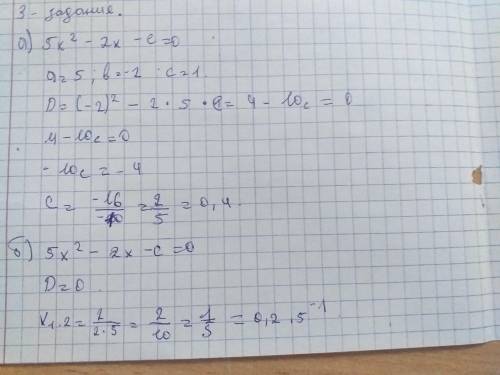 3 - задание.
а) 5x² - 2x - c = 0
a = 5 ; b = -2 c = 1.
D = (-2)² - 2 · 5 · c = 4 - 10c = 0
4 - 10c = 0
- 10c = - 4
c = -16/-10 = 2/5 = 0,4.
б) 5x² - 2x - c = 0
D = 0.
x₁.₂ = 2/2·5 = 2/10 = 1/5 = 0,2 , 5⁻¹